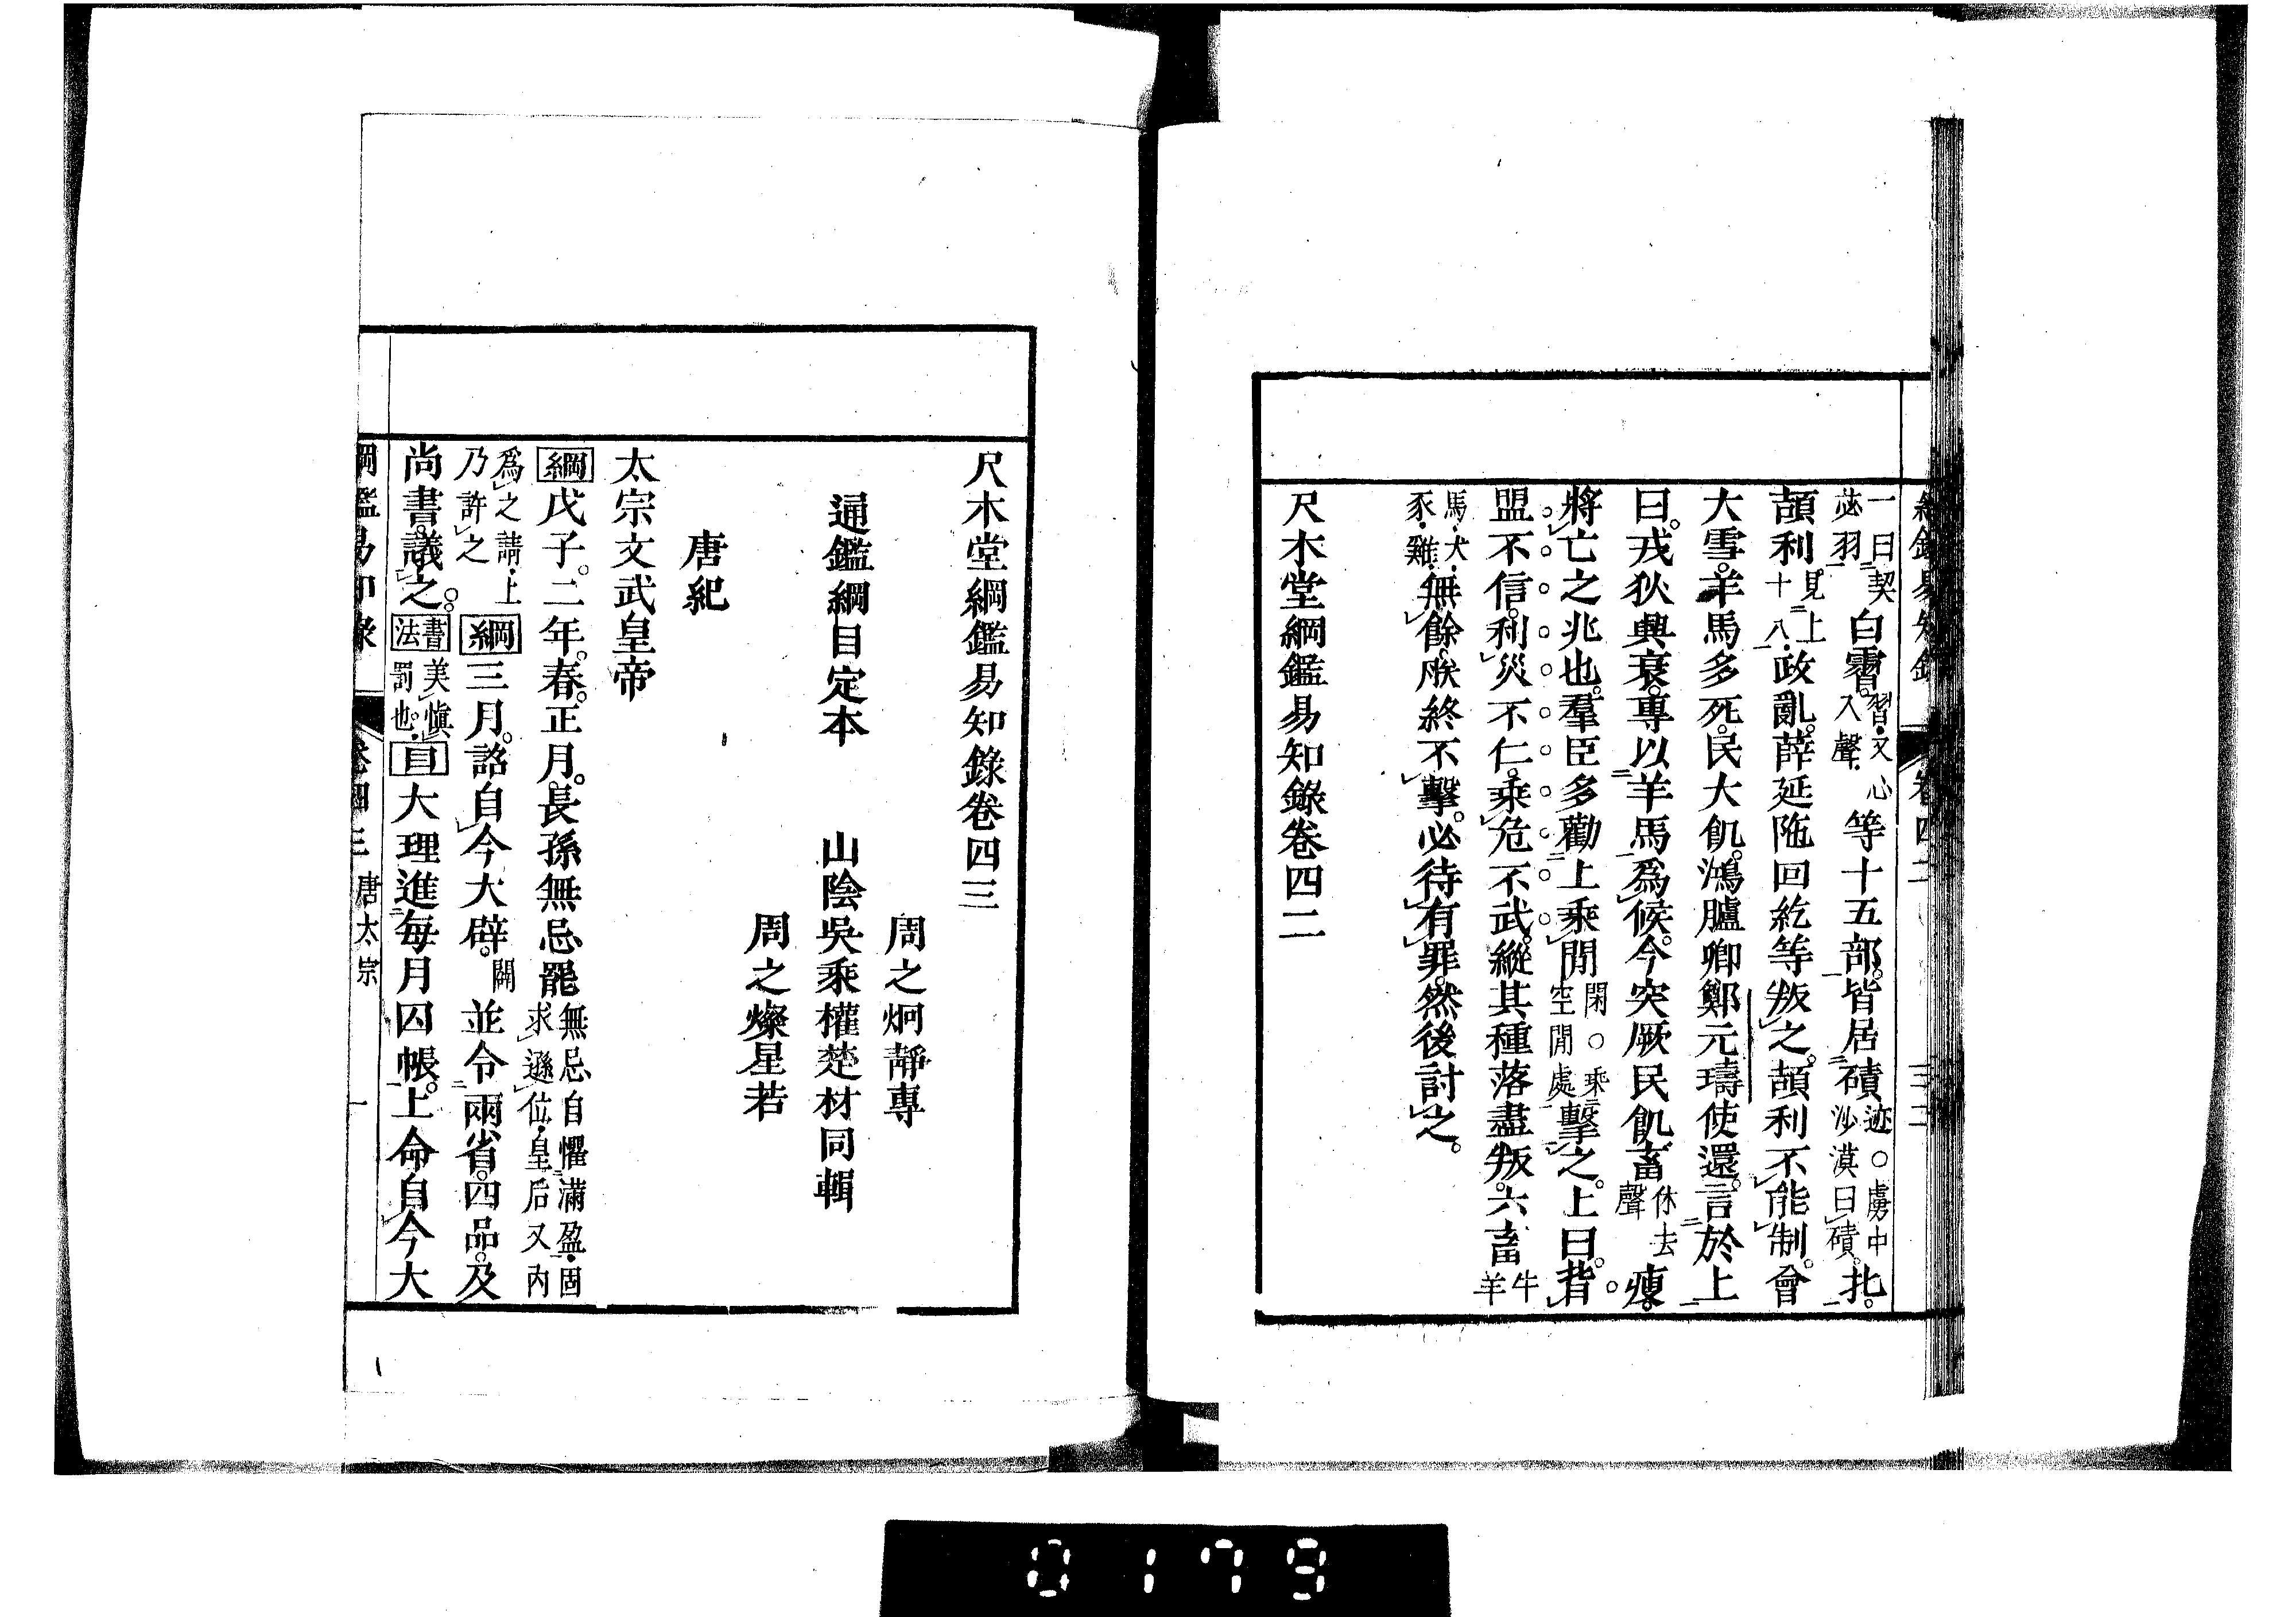 一曰契
苾羽
白霫
習・又心
入聲
等十五部。皆居磧
迹○虜中
沙漠曰磧。
北。
頡利
見上
十八・
政亂。薛延陁回紇等叛之。頡利不能制。會
大雪。羊馬多死。民大飢。鴻臚卿鄭元璹使還。言於上
曰。戎狄興衰。專以羊馬爲候。今突厥民飢畜
休去
聲
瘦。
將亡之兆也。羣臣多勸上乘閒
閑○乘
空閒處
擊之。上曰。背
盟不信。利災不仁。乘危不武。縱其種落盡叛。六畜
牛
羊
馬・犬・
豕・雞・
無餘。朕終不擊。必待有罪。然後討之。
尺木堂綱鑑易知錄卷四二
尺木堂綱鑑易知錄卷四三
周之炯靜專
通鑑綱目定本 山陰吳乘權楚材同輯
周之燦星若
唐紀
太宗文武皇帝
綱戊子。二年。春。正月。長孫無忌罷
無忌自懼滿盈・固
求遜位・皇后又內
爲之請・上
乃許之
綱三月。詔自今大辟。
闢
並令兩省。四品。及
尚書。議之。
書法
美愼
罰也・
目大理進每月囚帳。上命自今大
綱鑑易知錄 卷四三 唐太宗 一
0179